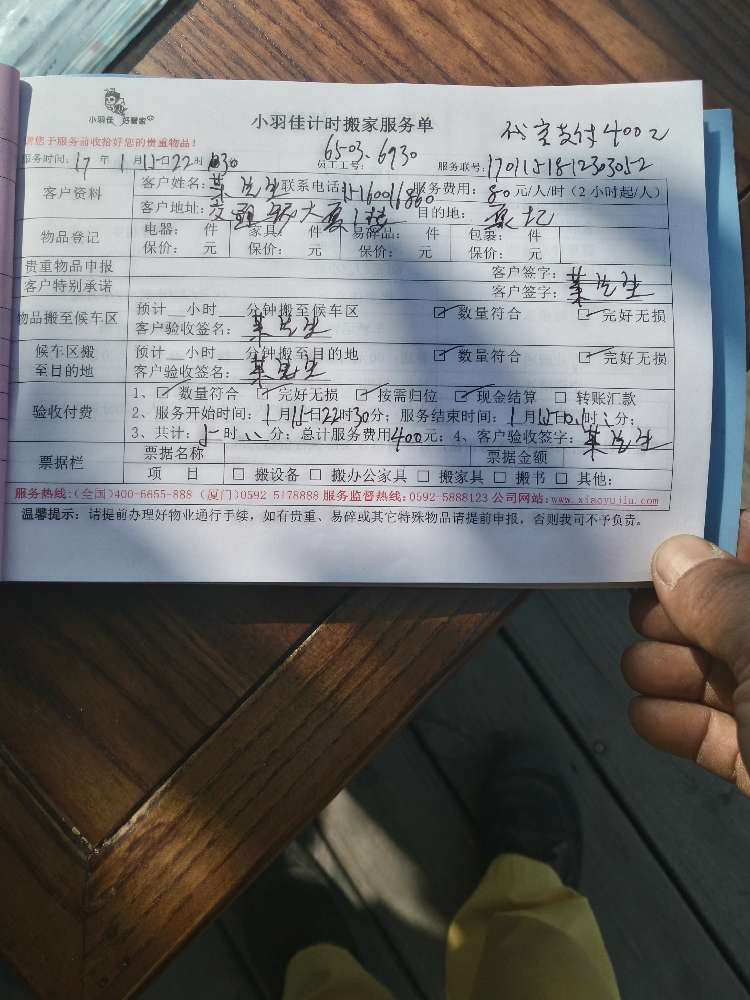 小羽佳 好管家
小羽佳计时搬家服务单
支付400元
请您于服务前收拾好您的贵重物品!
服务时间: 17 年 1 月 15日22时30
员工工号: 6503.6930
服务联号:
客户资料
客户姓名: 先生 联系电话: 服务费用: 80元/人/时 (2 小时起/人)
客户地址: 大厦 目的地:
物品登记
电器: 件 家具: 件 易碎品: 件 包裹: 件
保价: 元 保价: 元 保价: 元 保价: 元
贵重物品申报 客户签字: 先生
客户特别承诺 客户签字: 先生
物品搬至候车区
预计__小时__分钟搬至候车区 ☑ 数量符合 ☑ 完好无损
客户验收签名: 先生
候车区搬至目的地
预计__小时__分钟搬至目的地 ☑ 数量符合 ☑ 完好无损
客户验收签名: 先生
验收付费
1、☑ 数量符合 ☑ 完好无损 ☑ 按需归位 ☑ 现金结算 □ 转账汇款
2、服务开始时间: 1月15日22时30分; 服务结束时间: 1月 日 时 分;
3、共计: 时 分; 总计服务费用400元; 4、客户验收签字: 先生
票据栏
票据名称 票据金额
项 目 □ 搬设备 □ 搬办公家具 □ 搬家具 □ 搬书 □ 其他:
服务热线:(全国)400-5655-888 (厦门)0592 5178888 服务监督热线:0592-5888123 公司网站:www.xiaoyujiu.com
温馨提示: 请提前办理好物业通行手续, 如有贵重、易碎或其它特殊物品请提前申报, 否则我司不予负责。